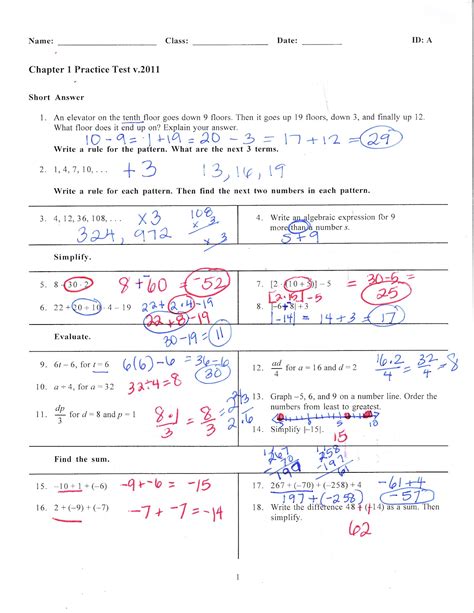 Name: Class: Date: ID: A
Chapter 1 Practice Test v.2011
Short Answer
1. An elevator on the tenth floor goes down 9 floors. Then it goes up 19 floors, down 3, and finally up 12.
What floor does it end up on? Explain your answer.
10 - 9 = 1 + 19 = 20 - 3 = 17 + 12 = 29
Write a rule for the pattern. What are the next 3 terms.
2. 1, 4, 7, 10, . . . +3 13, 16, 19
Write a rule for each pattern. Then find the next two numbers in each pattern.
3. 4, 12, 36, 108, . . . x3 108 x 3
324, 972
4. Write an algebraic expression for 9
more than a number s.
s + 9
Simplify.
5. 8 - 30 · 2 8 + -60 = -52
6. 22 + 20 ÷ 10 · 4 – 19
22 + 2 · 4 - 19
22 + 8 - 19
30 - 19 = 11
7. [2 · (10 + 5)] – 5 = 30 - 5 =
[2 · 15] - 5 25
8. |-6 + -8| + 3
|-14| = 14 + 3 = 17
Evaluate.
9. 6t – 6, for t = 6 6(6) - 6 = 36 - 6 = 30
10. a ÷ 4, for a = 32 32 ÷ 4 = 8
11. dp/3 for d = 8 and p = 1 8 · 1/3 = 8/3
12. ad/4 for a = 16 and d = 2 16 · 2/4 = 32/4 = 8
13. Graph –5, 6, and 9 on a number line. Order the
numbers from least to greatest.
14. Simplify |–15|.
15
Find the sum.
15. –10 + 1 + (–6) -9 + -6 = -15
16. 2 + (–9) + (–7) -7 + -7 = -14
17. 267 + (–70) + (–258) + 4 -61 + 4
197 + (-258) -57
18. Write the difference 48 – (–14) as a sum. Then
simplify.
62
1